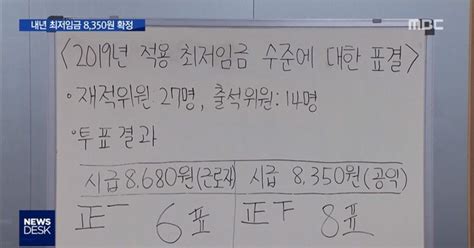 내년 최저임금 8,350원 확정
MBC
<2019년 적용 최저임금 수준에 대한 표결>
· 재적위원 27명, 출석위원: 14명
· 투표결과
시급 8,680원(근로자) 시급 8,350원(공익)
正一 6표 正下 8표
NEWS
DESK